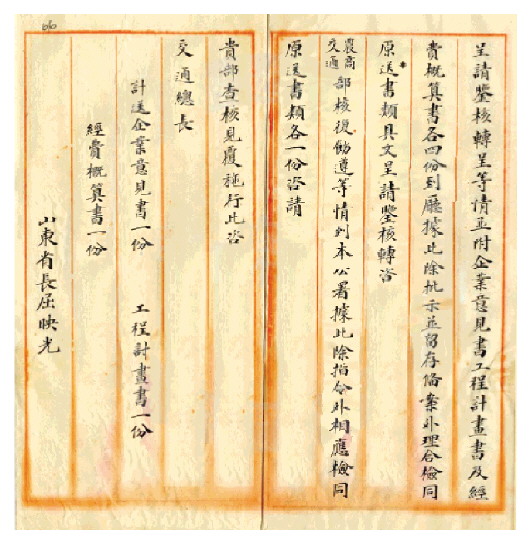 呈請鑒核轉呈等情並附企業意見書工程計畫書及經
費概算書各四份到廳據此除批示並留存備案外理合檢同
原送書類具文呈請鑒核轉咨
農商
交通
部核復飭遵等情到本公署據此除指令外相應檢同
原送書類各一份咨請
貴部查核見覆施行此咨
交通總長
計送企業意見書一份 工程計畫書一份
經費概算書一份
山東省長屈映光
66